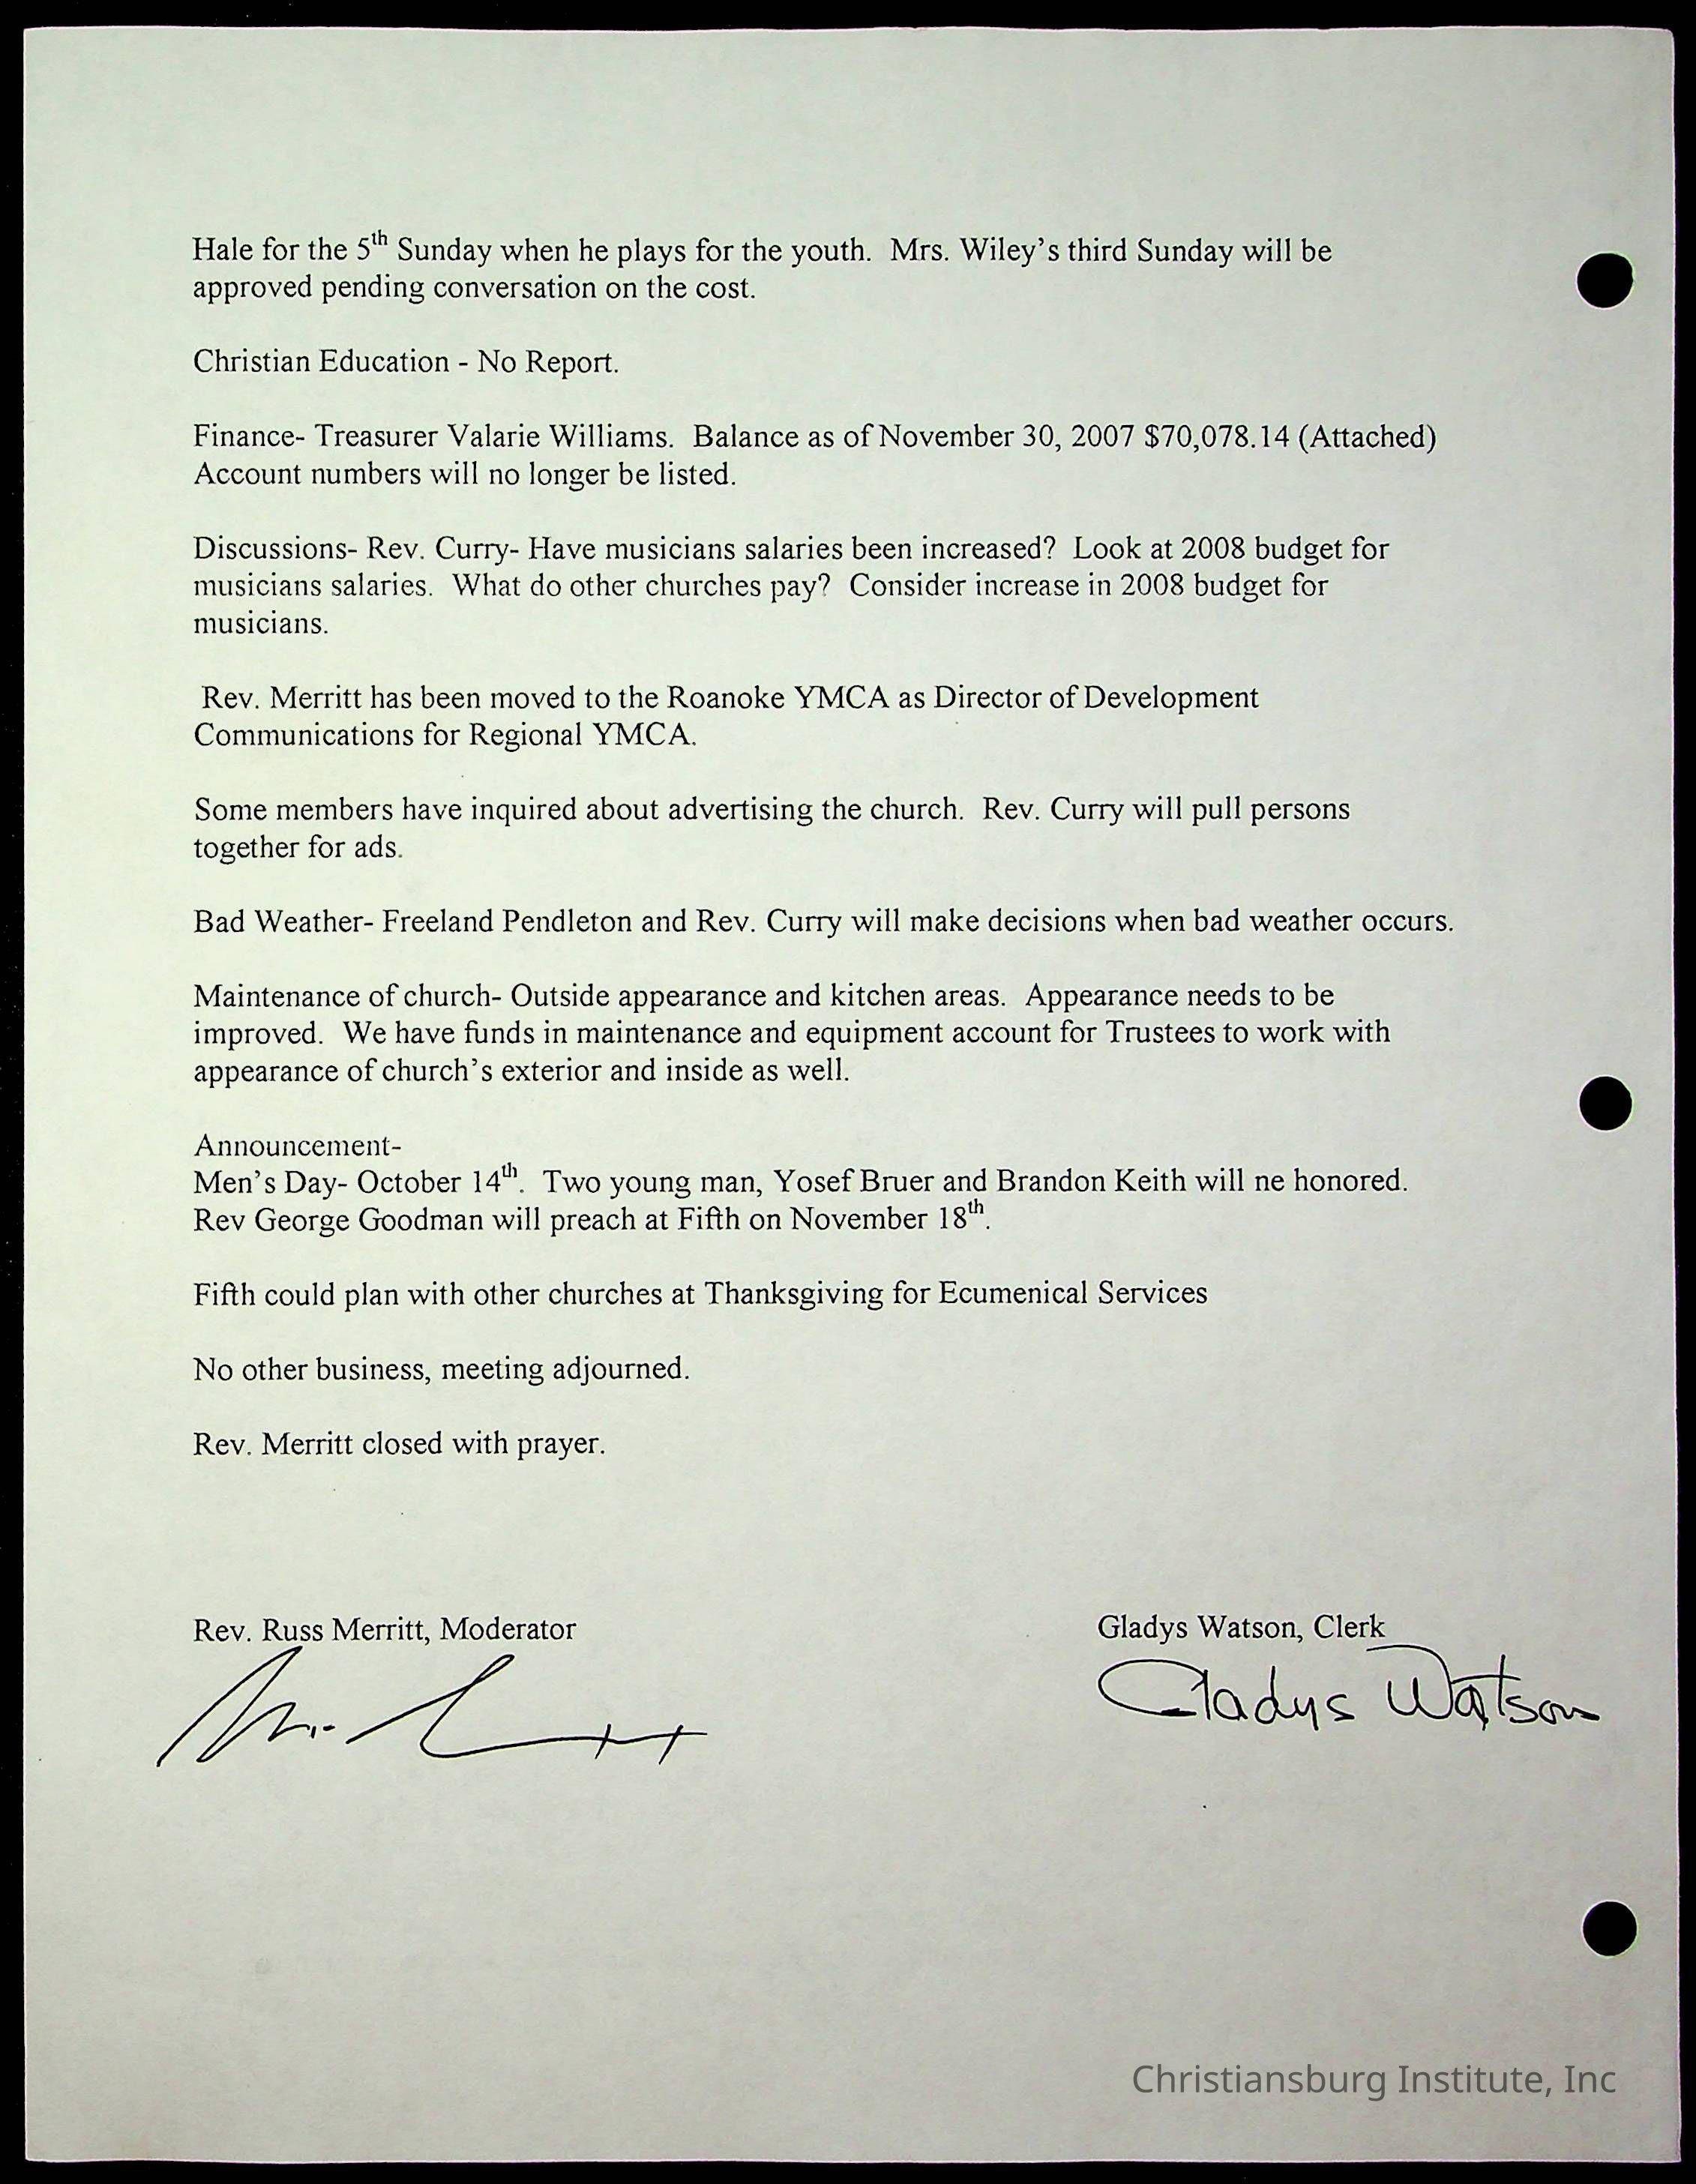 Hale for the 5th Sunday when he plays for the youth. Mrs. Wiley's third Sunday will be
approved pending conversation on the cost.
Christian Education - No Report.
Finance- Treasurer Valarie Williams. Balance as of November 30, 2007 $70,078.14 (Attached)
Account numbers will no longer be listed.
Discussions- Rev. Curry- Have musicians salaries been increased? Look at 2008 budget for
musicians salaries. What do other churches pay? Consider increase in 2008 budget for
musicians.
Rev. Merritt has been moved to the Roanoke YMCA as Director of Development
Communications for Regional YMCA.
Some members have inquired about advertising the church. Rev. Curry will pull persons
together for ads.
Bad Weather- Freeland Pendleton and Rev. Curry will make decisions when bad weather occurs.
Maintenance of church- Outside appearance and kitchen areas. Appearance needs to be
improved. We have funds in maintenance and equipment account for Trustees to work with
appearance of church's exterior and inside as well.
Announcement-
Men's Day- October 14th. Two young man, Yosef Bruer and Brandon Keith will ne honored.
Rev George Goodman will preach at Fifth on November 18th.
Fifth could plan with other churches at Thanksgiving for Ecumenical Services
No other business, meeting adjourned.
Rev. Merritt closed with prayer.
Rev. Russ Merritt, Moderator
Gladys Watson, Clerk
Gladys Watson
Christiansburg Institute, Inc